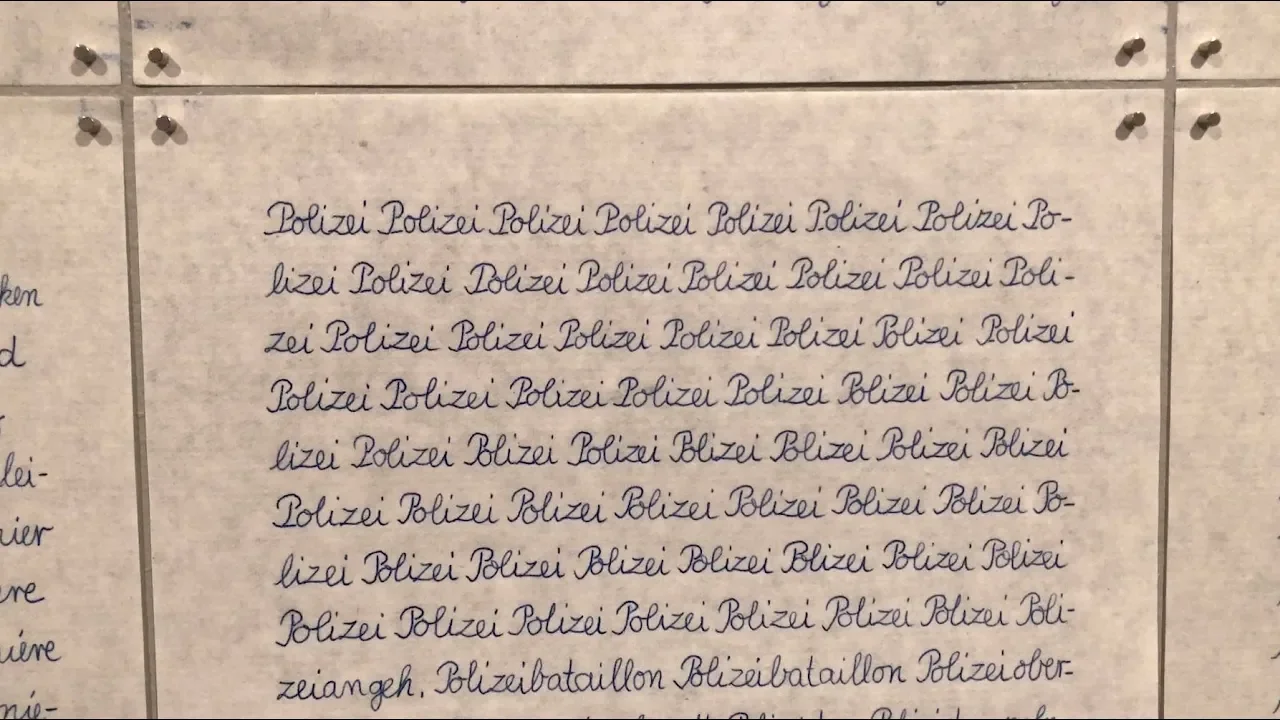 Polizei Polizei Polizei Polizei Polizei Polizei Polizei Po-
lizei Polizei Polizei Polizei Polizei Polizei Polizei Poli-
zei Polizei Polizei Polizei Polizei Polizei Polizei Polizei
Polizei Polizei Polizei Polizei Polizei Polizei Polizei Po-
lizei Polizei Polizei Polizei Polizei Polizei Polizei Polizei
Polizei Polizei Polizei Polizei Polizei Polizei Polizei Po-
lizei Polizei Polizei Polizei Polizei Polizei Polizei Polizei
Polizei Polizei Polizei Polizei Polizei Polizei Polizei Poli-
zeiangeh. Polizeibataillon Polizeibataillon Polizeiober-
ken
d
lei-
nier
ere
nière
nie-